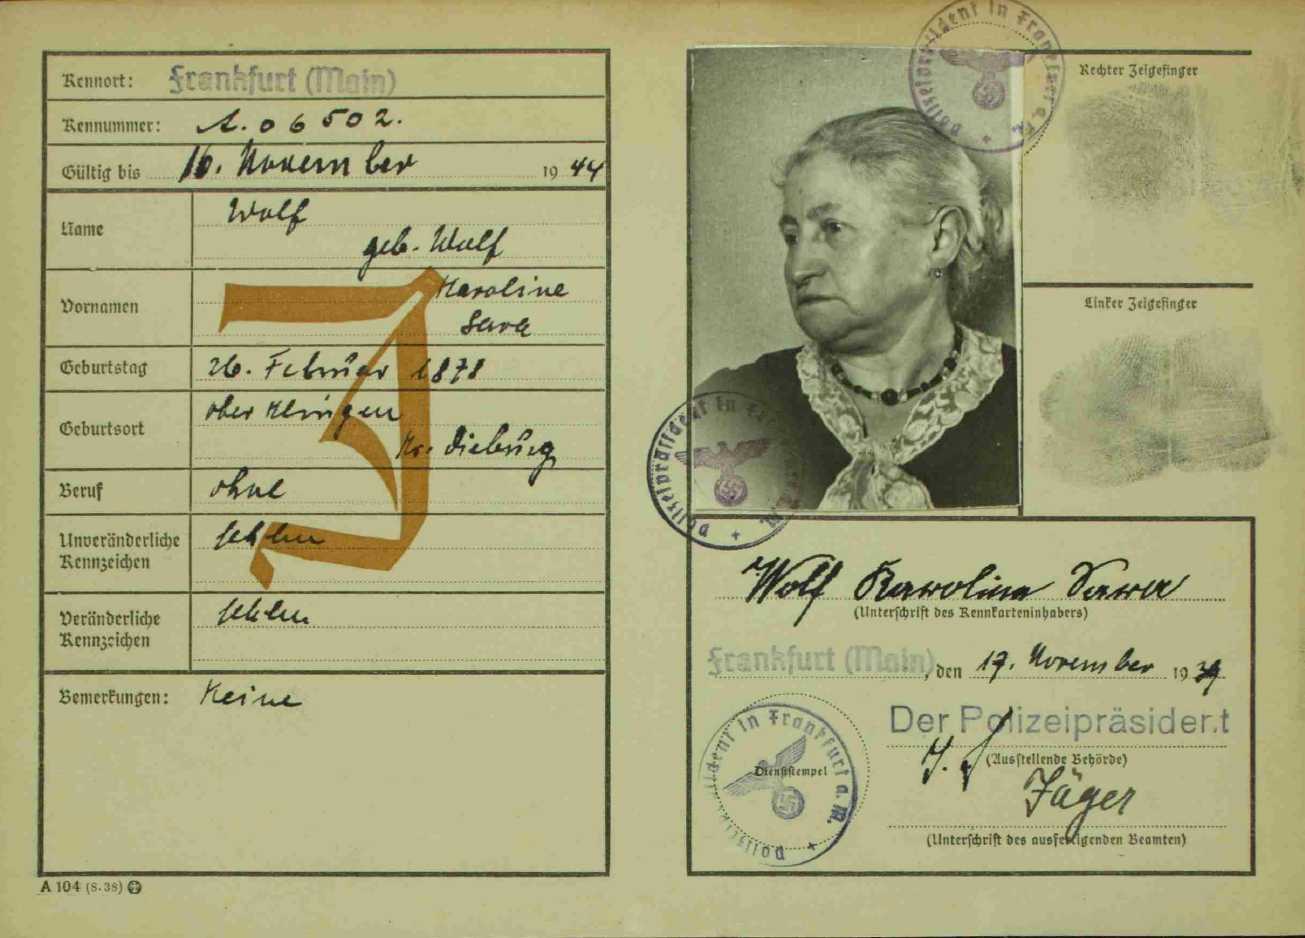 Kennort: Frankfurt (Main)
Kennummer: A. 06502.
Gültig bis 16. November 1944
Name Wolf
geb. Wolf
Vornamen Karoline
Sara
Geburtstag 26. Februar 1878
Geburtsort Ober Klingen
Kr. Dieburg
Beruf ohne
Unveränderliche Kennzeichen fehlen
Veränderliche Kennzeichen fehlen
Bemerkungen: Keine
J
A 104 (8.38)
Polizeipräsident in Frankfurt a. M.
Rechter Zeigefinger
Linker Zeigefinger
Polizeipräsident in Frankfurt a. M.
Wolf Karoline Sara
(Unterschrift des Kennkarteninhabers)
Frankfurt (Main), den 17. November 1939
Der Polizeipräsident
(Ausstellende Behörde)
Jäger
(Unterschrift des ausfertigenden Beamten)
Polizeipräsident in Frankfurt a. M.
Dienststempel